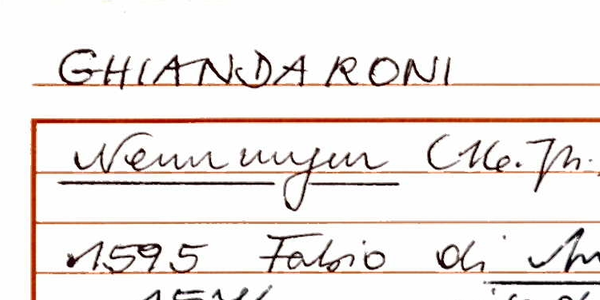 GHIANDARONI
Nennungen (16. Jh.
1595 Fabio di